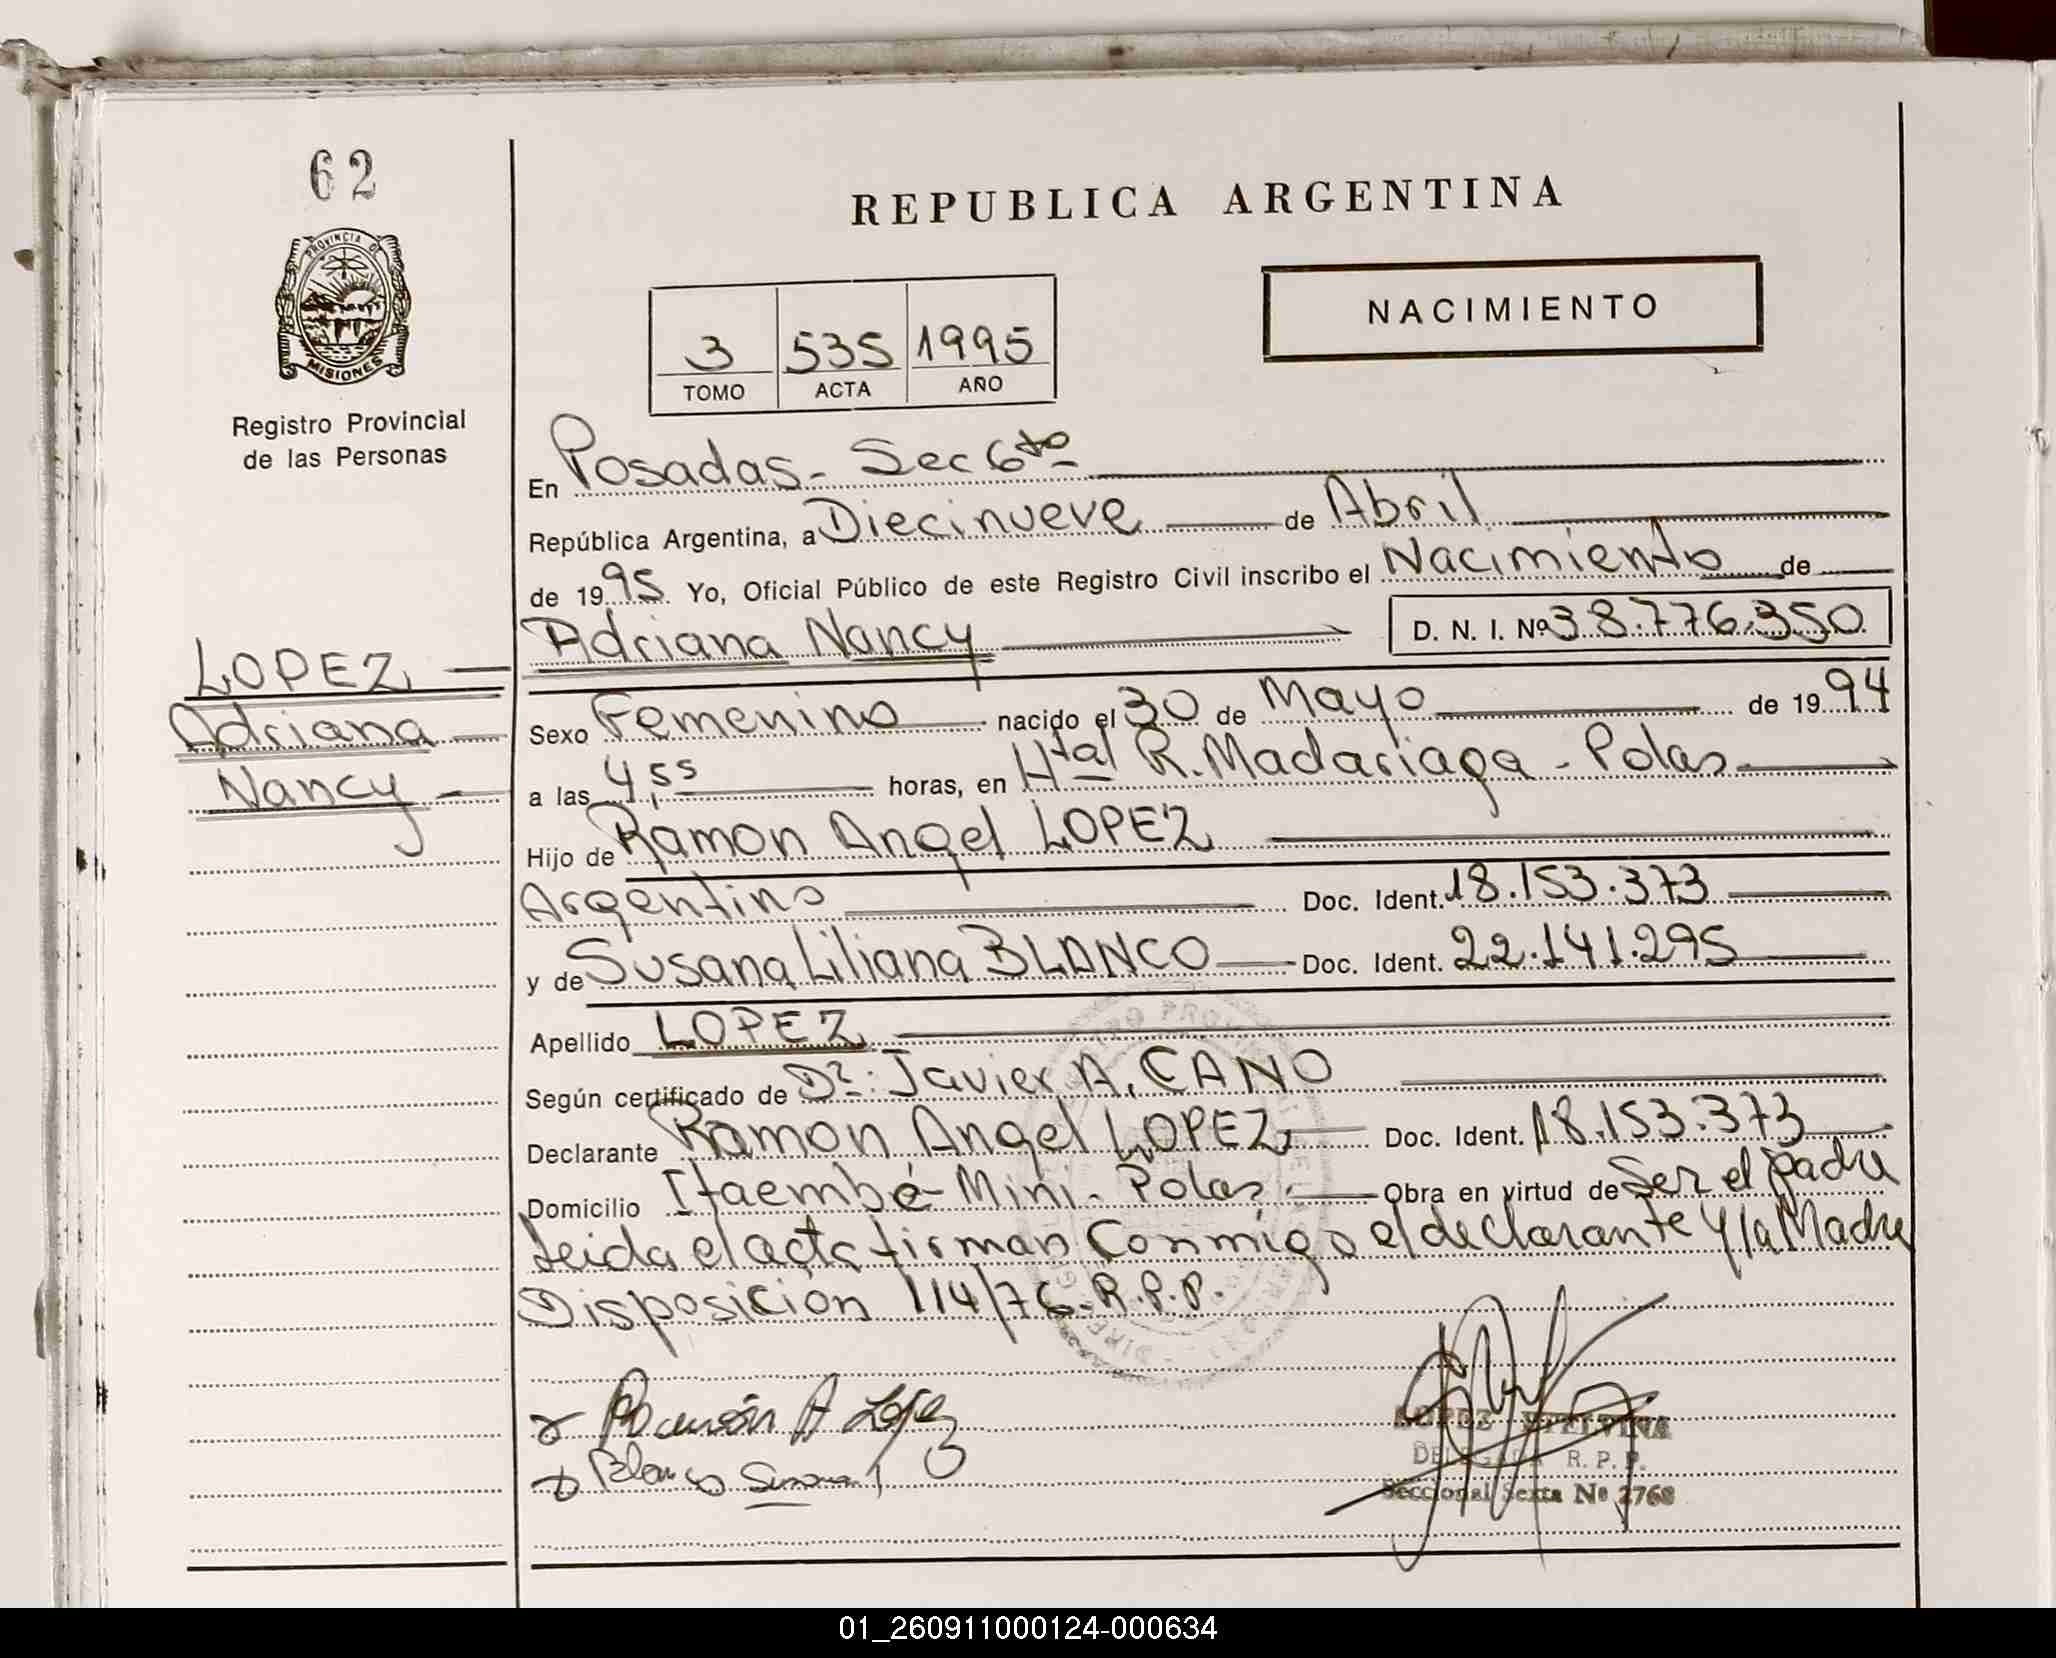 62
REPUBLICA ARGENTINA
PROVINCIA D
MISIONES
Registro Provincial
de las Personas
NACIMIENTO
3 535 1995
TOMO ACTA AÑO
En Posadas - Sec 6ta
República Argentina, a Diecinueve de Abril
de 1995 Yo, Oficial Público de este Registro Civil inscribo el Nacimiento de
Adriana Nancy D. N. I. Nº 38.776.350
LOPEZ
Adriana
Nancy
Sexo Femenino nacido el 30 de Mayo de 1994
a las 4,55 horas, en Htal R. Madariaga - Pdas
Hijo de Ramon Angel LOPEZ
Argentino Doc. Ident. 18.153.373
y de Susana Liliana BLANCO Doc. Ident. 22.141.295
Apellido LOPEZ
Según certificado de Dr: Javier A. CANO
Declarante Ramon Angel LOPEZ Doc. Ident. 18.153.373
Domicilio Itaembé - Mini - Pdas. Obra en virtud de Ser el padre
Leida el acta firman Conmigo el declarante y la Madre
Disposición 114/76 - R.P.P.
Ramón A López
Blanco Susana L
LOPEZ ETELVINA
DELEGADA R. P. P.
Seccional Sexta Nº 2768
01_260911000124-000634